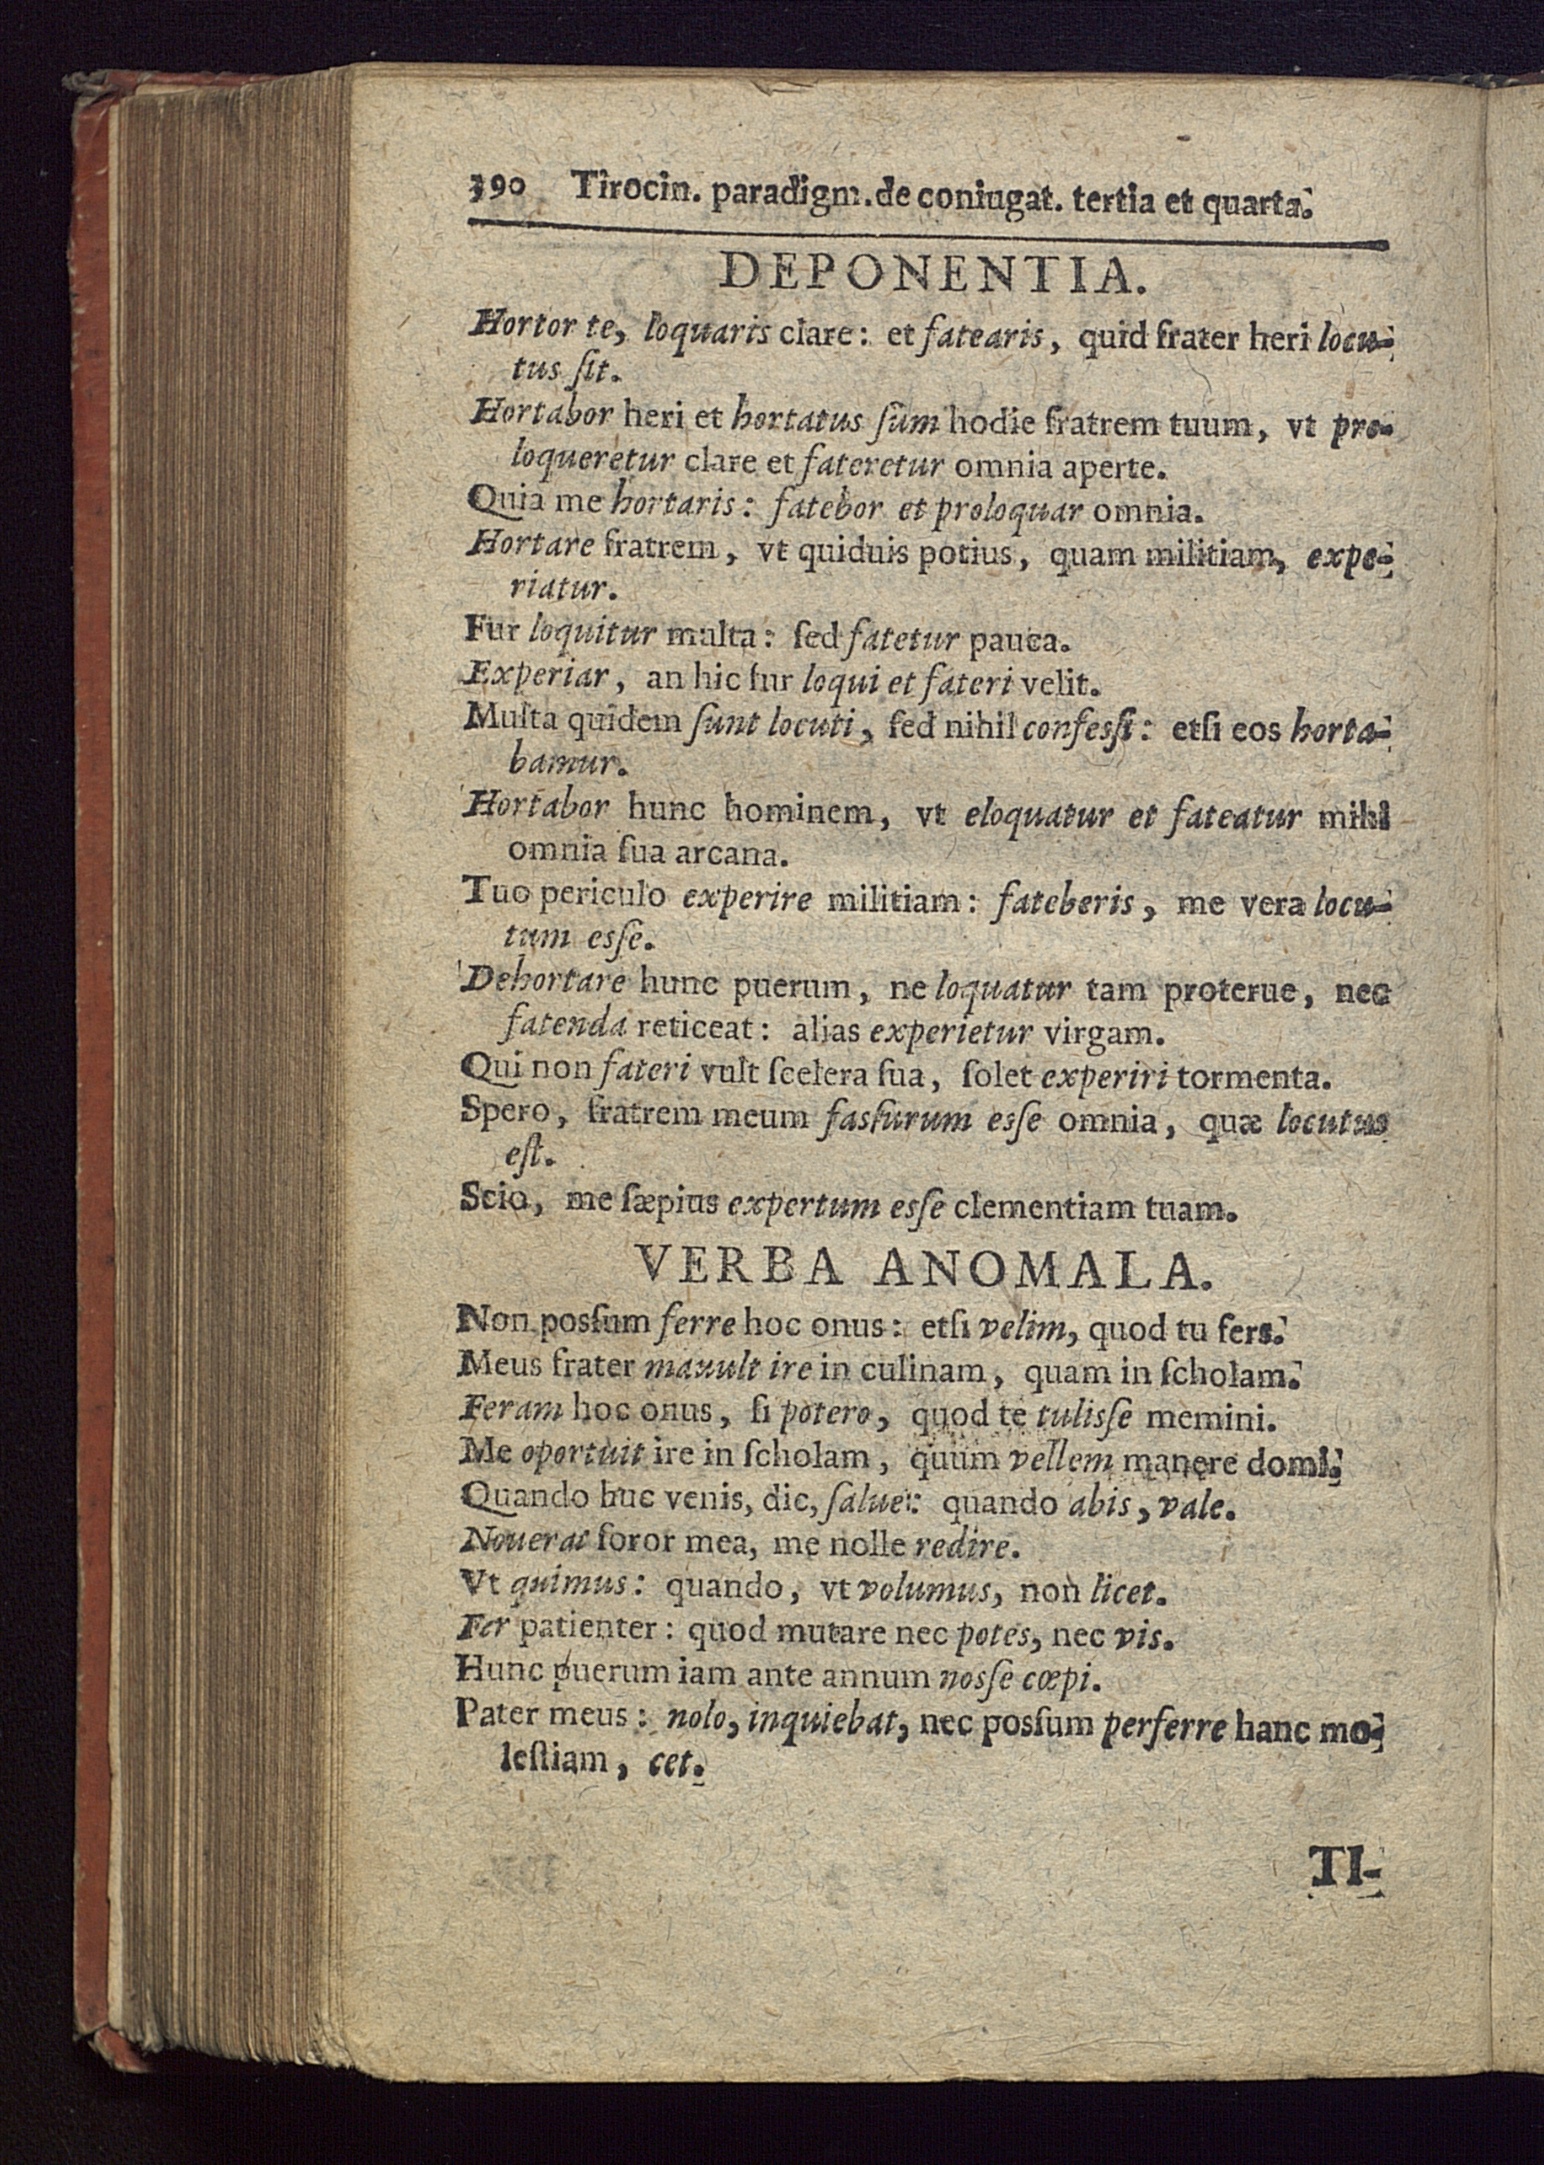 390 Tirocin. paradigm. de coniugat. tertia et quarta.
DEPONENTIA.
Hortor te, loquaris clare: et fatearis, quid frater heri locu-
tus ſit.
Hortabor heri et hortatus ſum hodie fratrem tuum, vt pro-
loqueretur clare et fateretur omnia aperte.
Quia me hortaris: fatebor et proloquar omnia.
Hortare fratrem, vt quiduis potius, quam militiam, expe-
riatur.
Fur loquitur multa: ſed fatetur pauca.
Experiar, an hic fur loqui et fateri velit.
Multa quidem ſunt locuti, ſed nihil confesſi: etſi eos horta-
bamur.
Hortabor hunc hominem, vt eloquatur et fateatur mihi
omnia ſua arcana.
Tuo periculo experire militiam: fateberis, me vera locu-
tum esſe.
Dehortare hunc puerum, ne loquatur tam proterue, nec
fatenda reticeat: alias experietur virgam.
Qui non fateri vult ſcelera ſua, ſolet experiri tormenta.
Spero, fratrem meum fasſurum esſe omnia, quæ locutus
eſt.
Scio, me ſæpius expertum esſe clementiam tuam.
VERBA ANOMALA.
Non posſum ferre hoc onus: etſi velim, quod tu fers.
Meus frater mauult ire in culinam, quam in ſcholam.
Feram hoc onus, ſi potero, quod te tulisſe memini.
Me oportuit ire in ſcholam, quum vellem manere domi.
Quando huc venis, dic, ſalue: quando abis, vale.
Nouerat ſoror mea, me nolle redire.
Vt quimus: quando, vt volumus, non licet.
Fer patienter: quod mutare nec potes, nec vis.
Hunc puerum iam ante annum nosſe cœpi.
Pater meus: nolo, inquiebat, nec posſum perferre hanc mo-
leſtiam, cet.
TI-